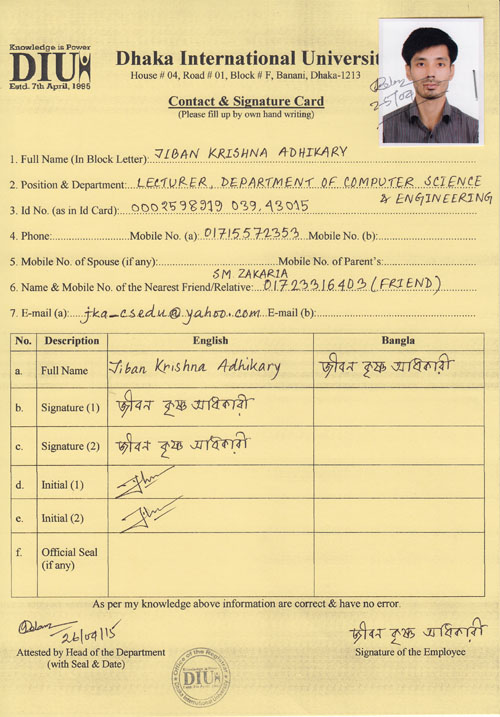 Knowledge is Power
DIU
Estd. 7th April, 1995
Dhaka International Universit
House # 04, Road # 01, Block # F, Banani, Dhaka-1213
Contact & Signature Card
(Please fill up by own hand writing)
25/04
1. Full Name (In Block Letter): JIBAN KRISHNA ADHIKARY
2. Position & Department: LECTURER, DEPARTMENT OF COMPUTER SCIENCE
& ENGINEERING
3. Id No. (as in Id Card): 0002598919 039,43015
4. Phone: Mobile No. (a): 01715572353 Mobile No. (b):
5. Mobile No. of Spouse (if any): Mobile No. of Parent's:
SM. ZAKARIA
6. Name & Mobile No. of the Nearest Friend/Relative: 01723316403 (FRIEND)
7. E-mail (a): jka_csedu@yahoo.com E-mail (b):
No. Description English Bangla
a. Full Name Jiban Krishna Adhikary জীবন কৃষ্ণ অধিকারী
b. Signature (1) জীবন কৃষ্ণ অধিকারী
c. Signature (2) জীবন কৃষ্ণ অধিকারী
d. Initial (1)
e. Initial (2)
f. Official Seal
(if any)
As per my knowledge above information are correct & have no error.
26/04/15 জীবন কৃষ্ণ অধিকারী
Attested by Head of the Department Signature of the Employee
(with Seal & Date)
Office of the Registrar
DIU